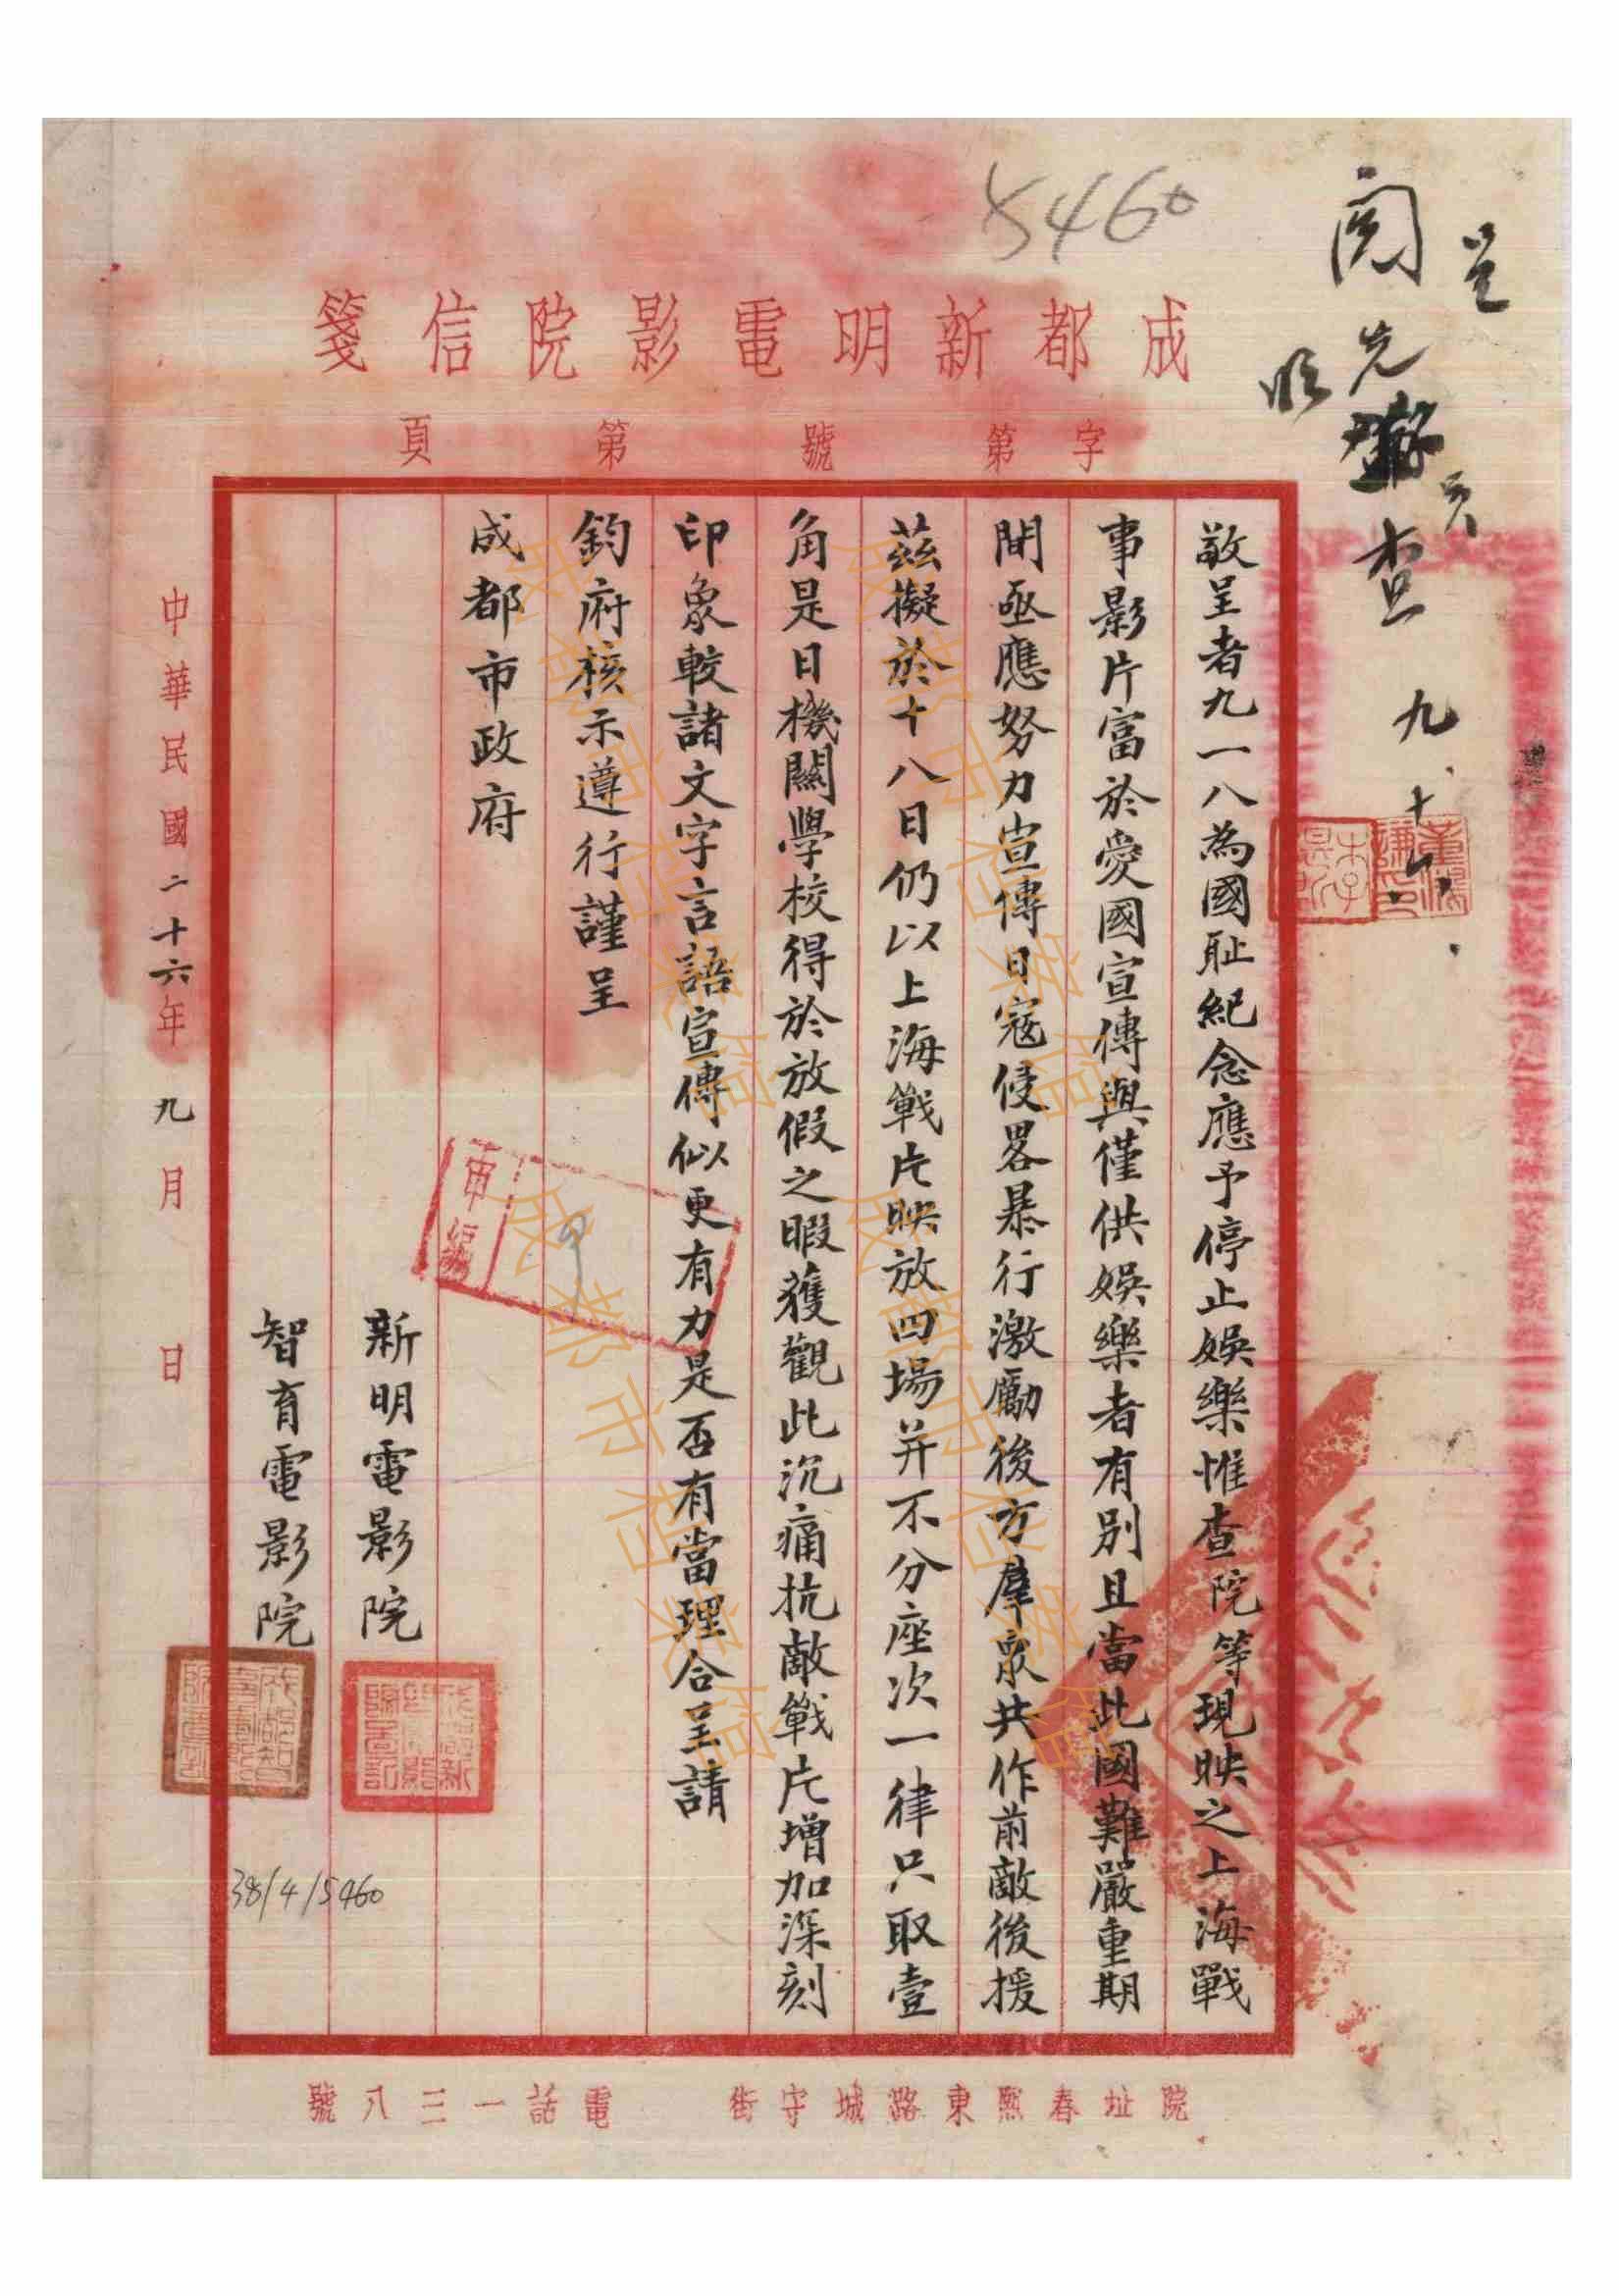 5460
呈
閱
先
九、十六、
成都新明電影院信箋
字第 號 第 頁
敬呈者九一八為國恥紀念應予停止娛樂惟查院等現映之上海戰
事影片富於愛國宣傳與僅供娛樂者有別且當此國難嚴重期
間亟應努力宣傳日寇侵畧暴行激勵後方羣眾共作前敵後援
茲擬於十八日仍以上海戰片映放四場并不分座次一律只取壹
角是日機關學校得於放假之暇獲觀此沉痛抗敵戰片增加深刻
印象較諸文字言語宣傳似更有力是否有當理合呈請
鈞府核示遵行謹呈
成都市政府
新明電影院
智育電影院
中華民國二十六年九月 日
38/4/5460
院址春熙東路城守街 電話一三八號
成都市檔案館
成都市檔案館
成都市檔案館
成都市檔案館